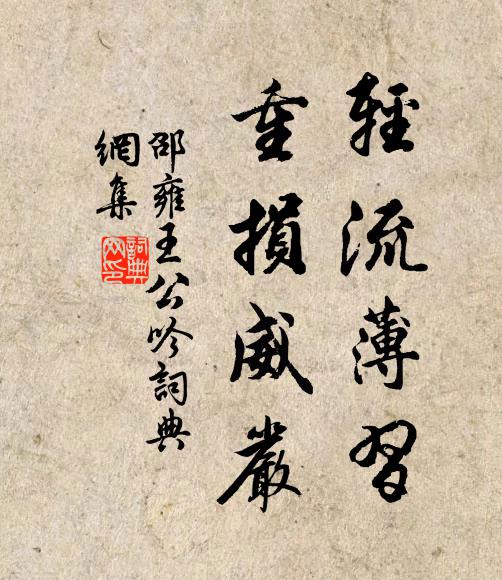 輕流薄習
重損威嚴
邵雍王公吟詞典
網集
詞典
网印